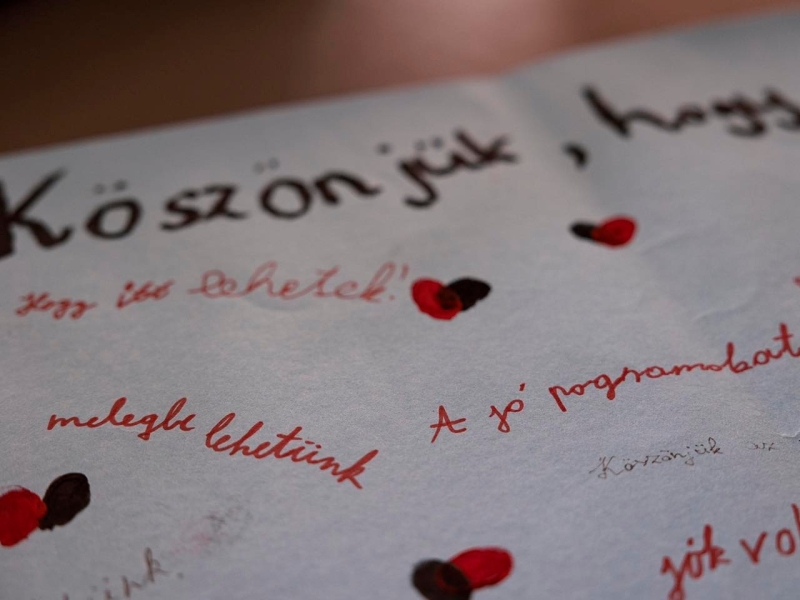 Köszönjük, hogy
Hogy itt lehetek!
A jó pogramobat
melegbe lehetünk
Köszönjük az
jók vol